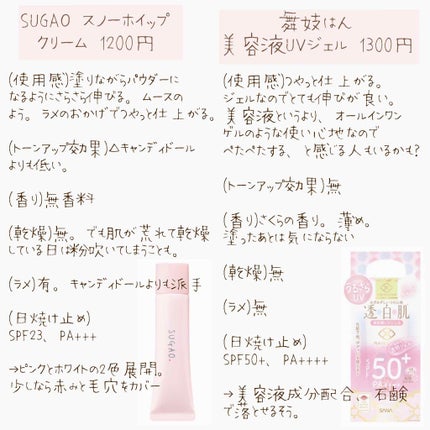 SUGAO スノーホイップ
クリーム 1200円
(使用感)塗りながらパウダーに
なるようにさらさら伸びる。ムースの
よう。ラメのおかげでつやっと仕上がる。
(トーンアップ効果)△キャンディドール
よりも低い。
(香り)無香料
(乾燥)無。でも肌が荒れて乾燥
している日は粉吹いてしまうことも。
(ラメ)有。キャンディドールよりも派手
(日焼け止め)
SPF23、PA+++
→ピンクとホワイトの2色展開。
少しなら赤みと毛穴をカバー
SUGAO
舞妓はん
美容液UVジェル 1300円
(使用感)つやっと仕上がる。
ジェルなのでとても伸びが良い。
美容液というより、オールインワン
ゲルのような使い心地なので
ぺたぺたする、と感じる人もいるかも?
(トーンアップ効果)無
(香り)さくらの香り。薄め。
塗ったあとは気にならない
(乾燥)無
(ラメ)無
(日焼け止め)
SPF50+、PA++++
→美容液成分配合、石鹸
で落とせるそう。
うるさら
UV
透白肌
50+
PA++++
SANA